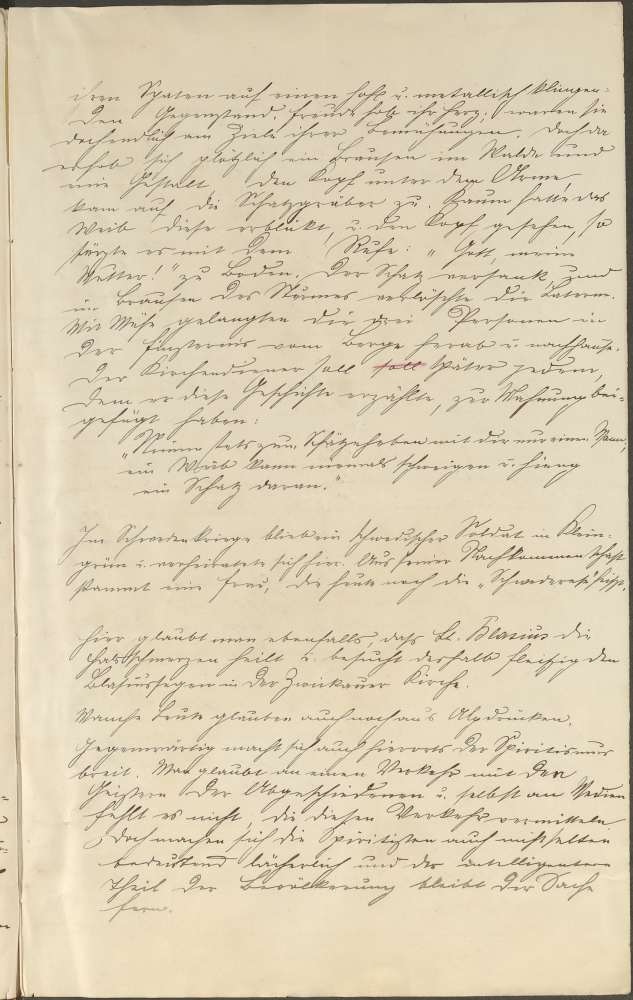 ihren Spaten auf einen hohl u. metallisch klingen-
den Gegenstand. Freude hob ihr Herz; waren sie
doch endlich am Ziele ihrer Bemühungen. Doch da
erhob sich plötzlich ein Brausen im Walde und
eine Gestalt, den Kopf unter dem Arme,
kam auf die Schatzgräber zu. Kaum hatte das
Weib diese erblickt, u. den Kopf gesehen, so
stürzte es mit dem Rufe: „Gott, meine
Mutter!" zu Boden. Der Schatz versank und
im Brausen des Sturmes verlöschte die Laterne.
Mit Mühe gelangten die drei Personen in
der Finsternis vom Berge herab u. nachhause.
Der Kirchendiener soll soll später jedem,
dem er diese Geschichte erzählte, zur Mahnung bei-
gefügt haben:
„Nimm stets zum Schätzeheben mit dir nur einen Mann,
ein Weib kann niemals schweigen u. hieng
ein Schatz daran."
Im Schwedenkriege blieb ein schwedischer Soldat in Klein-
grün u. verheiratete sich hier. Aus seiner Nachkommenschaft
stammt eine Frau, die heute noch die „Schwedarest" heißt.
Hier glaubt man ebenfalls, daß St. Blasius die
Halsschmerzen heilt u. besucht deshalb fleißig den
Blasiussegen in der Zwickauer Kirche.
Manche Leute glauben auch noch an's Alpdrücken.
Gegenwärtig macht sich auch hierorts der Spiritismus
breit. Man glaubt an einen Verkehr mit den
Geistern der Abgeschiedenen u. selbst an Medien
fehlt es nicht, die diesen Verkehr vermitteln.
Doch machen sich die Spiritisten auch nicht selten
bedeutend lächerlich und der intelligentere
Theil der Bevölkerung bleibt der Sache
fern.